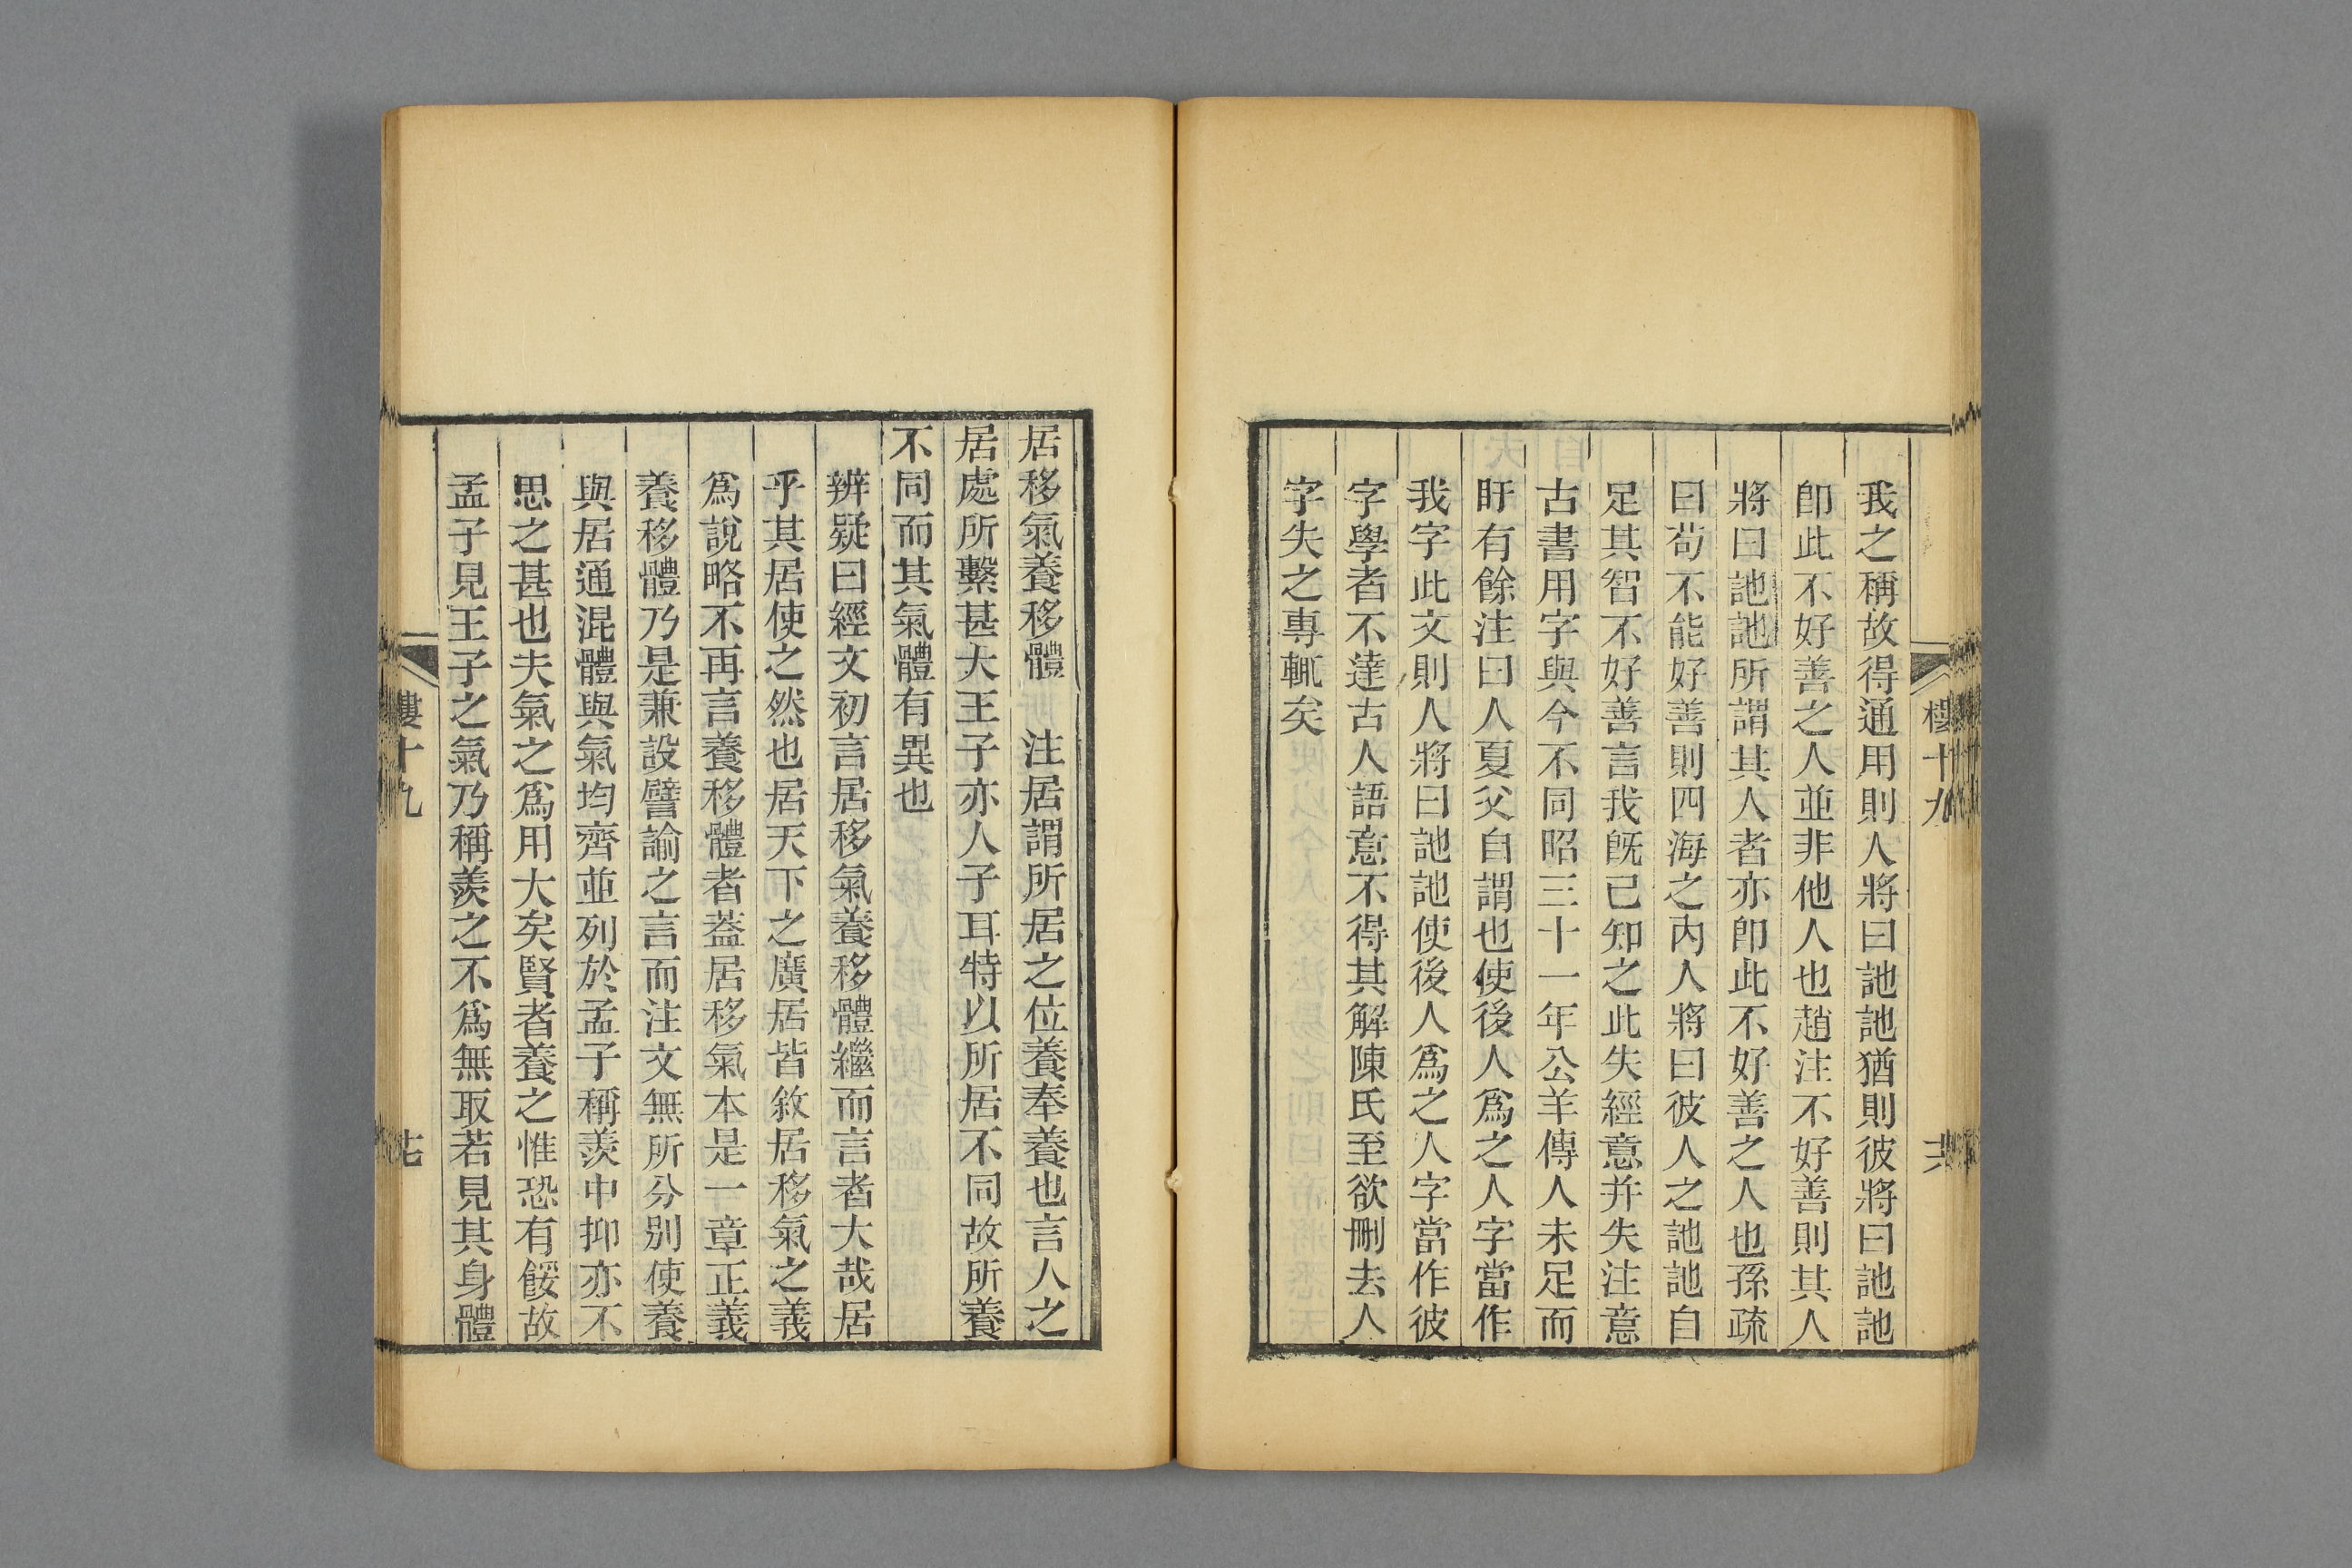 我之稱故得通用則人將曰訑訑猶則彼將曰訑訑
卽此不好善之人並非他人也趙注不好善則其人
將曰訑訑所謂其人者亦卽此不好善之人也孫疏
曰苟不能好善則四海之內人將曰彼人之訑訑自
足其智不好善言我既已知之此失經意并失注意
古書用字與今不同昭三十一年公羊傳人未足而
盱有餘注曰人夏父自謂也使後人爲之人字當作
我字此文則人將曰訑訑使後人爲之人字當作彼
字學者不達古人語意不得其解陳氏至欲刪去人
字失之專輒矣
十九
居移氣養移體　注居謂所居之位養奉養也言人之
居處所繫甚大王子亦人子耳特以所居不同故所養
不同而其氣體有異也
辨疑曰經文初言居移氣養移體繼而言者大哉居
乎其居使之然也居天下之廣居皆敘居移氣之義
爲說略不再言養移體者蓋居移氣本是一章正義
養移體乃是兼設譬諭之言而注文無所分別使養
與居通混體與氣均齊並列於孟子稱羨中抑亦不
思之甚也夫氣之爲用大矣賢者養之惟恐有餒故
孟子見王子之氣乃稱羨之不爲無取若見其身體
十九